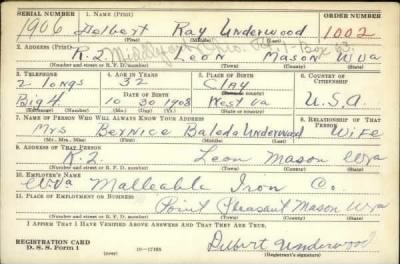 SERIAL NUMBER 1. NAME (Print) ORDER NUMBER
1906 Delbert Ray Underwood 1002
(First) (Middle) (Last)
2. ADDRESS (Print)
R.2 Leon Mason WVa
(Number and street or R. F. D. number) (Town) (County) (State)
3. TELEPHONE 4. AGE IN YEARS 5. PLACE OF BIRTH 6. COUNTRY OF CITIZENSHIP
2 longs 32 Clay
DATE OF BIRTH (Town or county)
Big 4 10 30 1908 West Va U.S.A.
(Exchange) (Number) (Mo.) (Day) (Yr.) (State or country)
7. NAME OF PERSON WHO WILL ALWAYS KNOW YOUR ADDRESS 8. RELATIONSHIP OF THAT PERSON
Mrs Bernice Underwood Wife
(Mr., Mrs., Miss) (First) (Middle) (Last)
9. ADDRESS OF THAT PERSON
R.2. Leon Mason WVa
(Number and street or R. F. D. number) (Town) (County) (State)
10. EMPLOYER'S NAME
W.Va Malleable Iron Co.
11. PLACE OF EMPLOYMENT OR BUSINESS
Point Pleasant Mason WVa
(Number and street or R. F. D. number) (Town) (County) (State)
I AFFIRM THAT I HAVE VERIFIED ABOVE ANSWERS AND THAT THEY ARE TRUE.
REGISTRATION CARD
D. S. S. Form 1 (over) Delbert Underwood
(Registrant's signature)